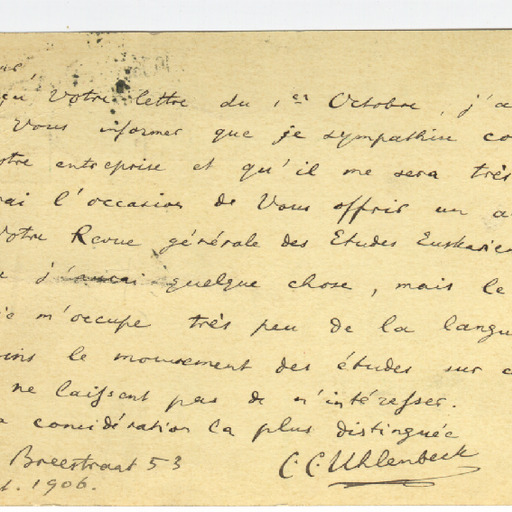 Votre lettre du 1er Octobre, j'a
Vous informer que je sympathise co
otre entreprise et qu'il me sera très
rai l'occasion de Vous offrir un a
Votre Revue générale des Etudes Euskarien
j'aurai quelque chose, mais le
m'occupe très peu de la langu
oins le mouvement des études sur
ne laissent pas de m'intéresser.
considération la plus distinguée
Breestraat 53 C.C.Uhlenbeck
t. 1906.